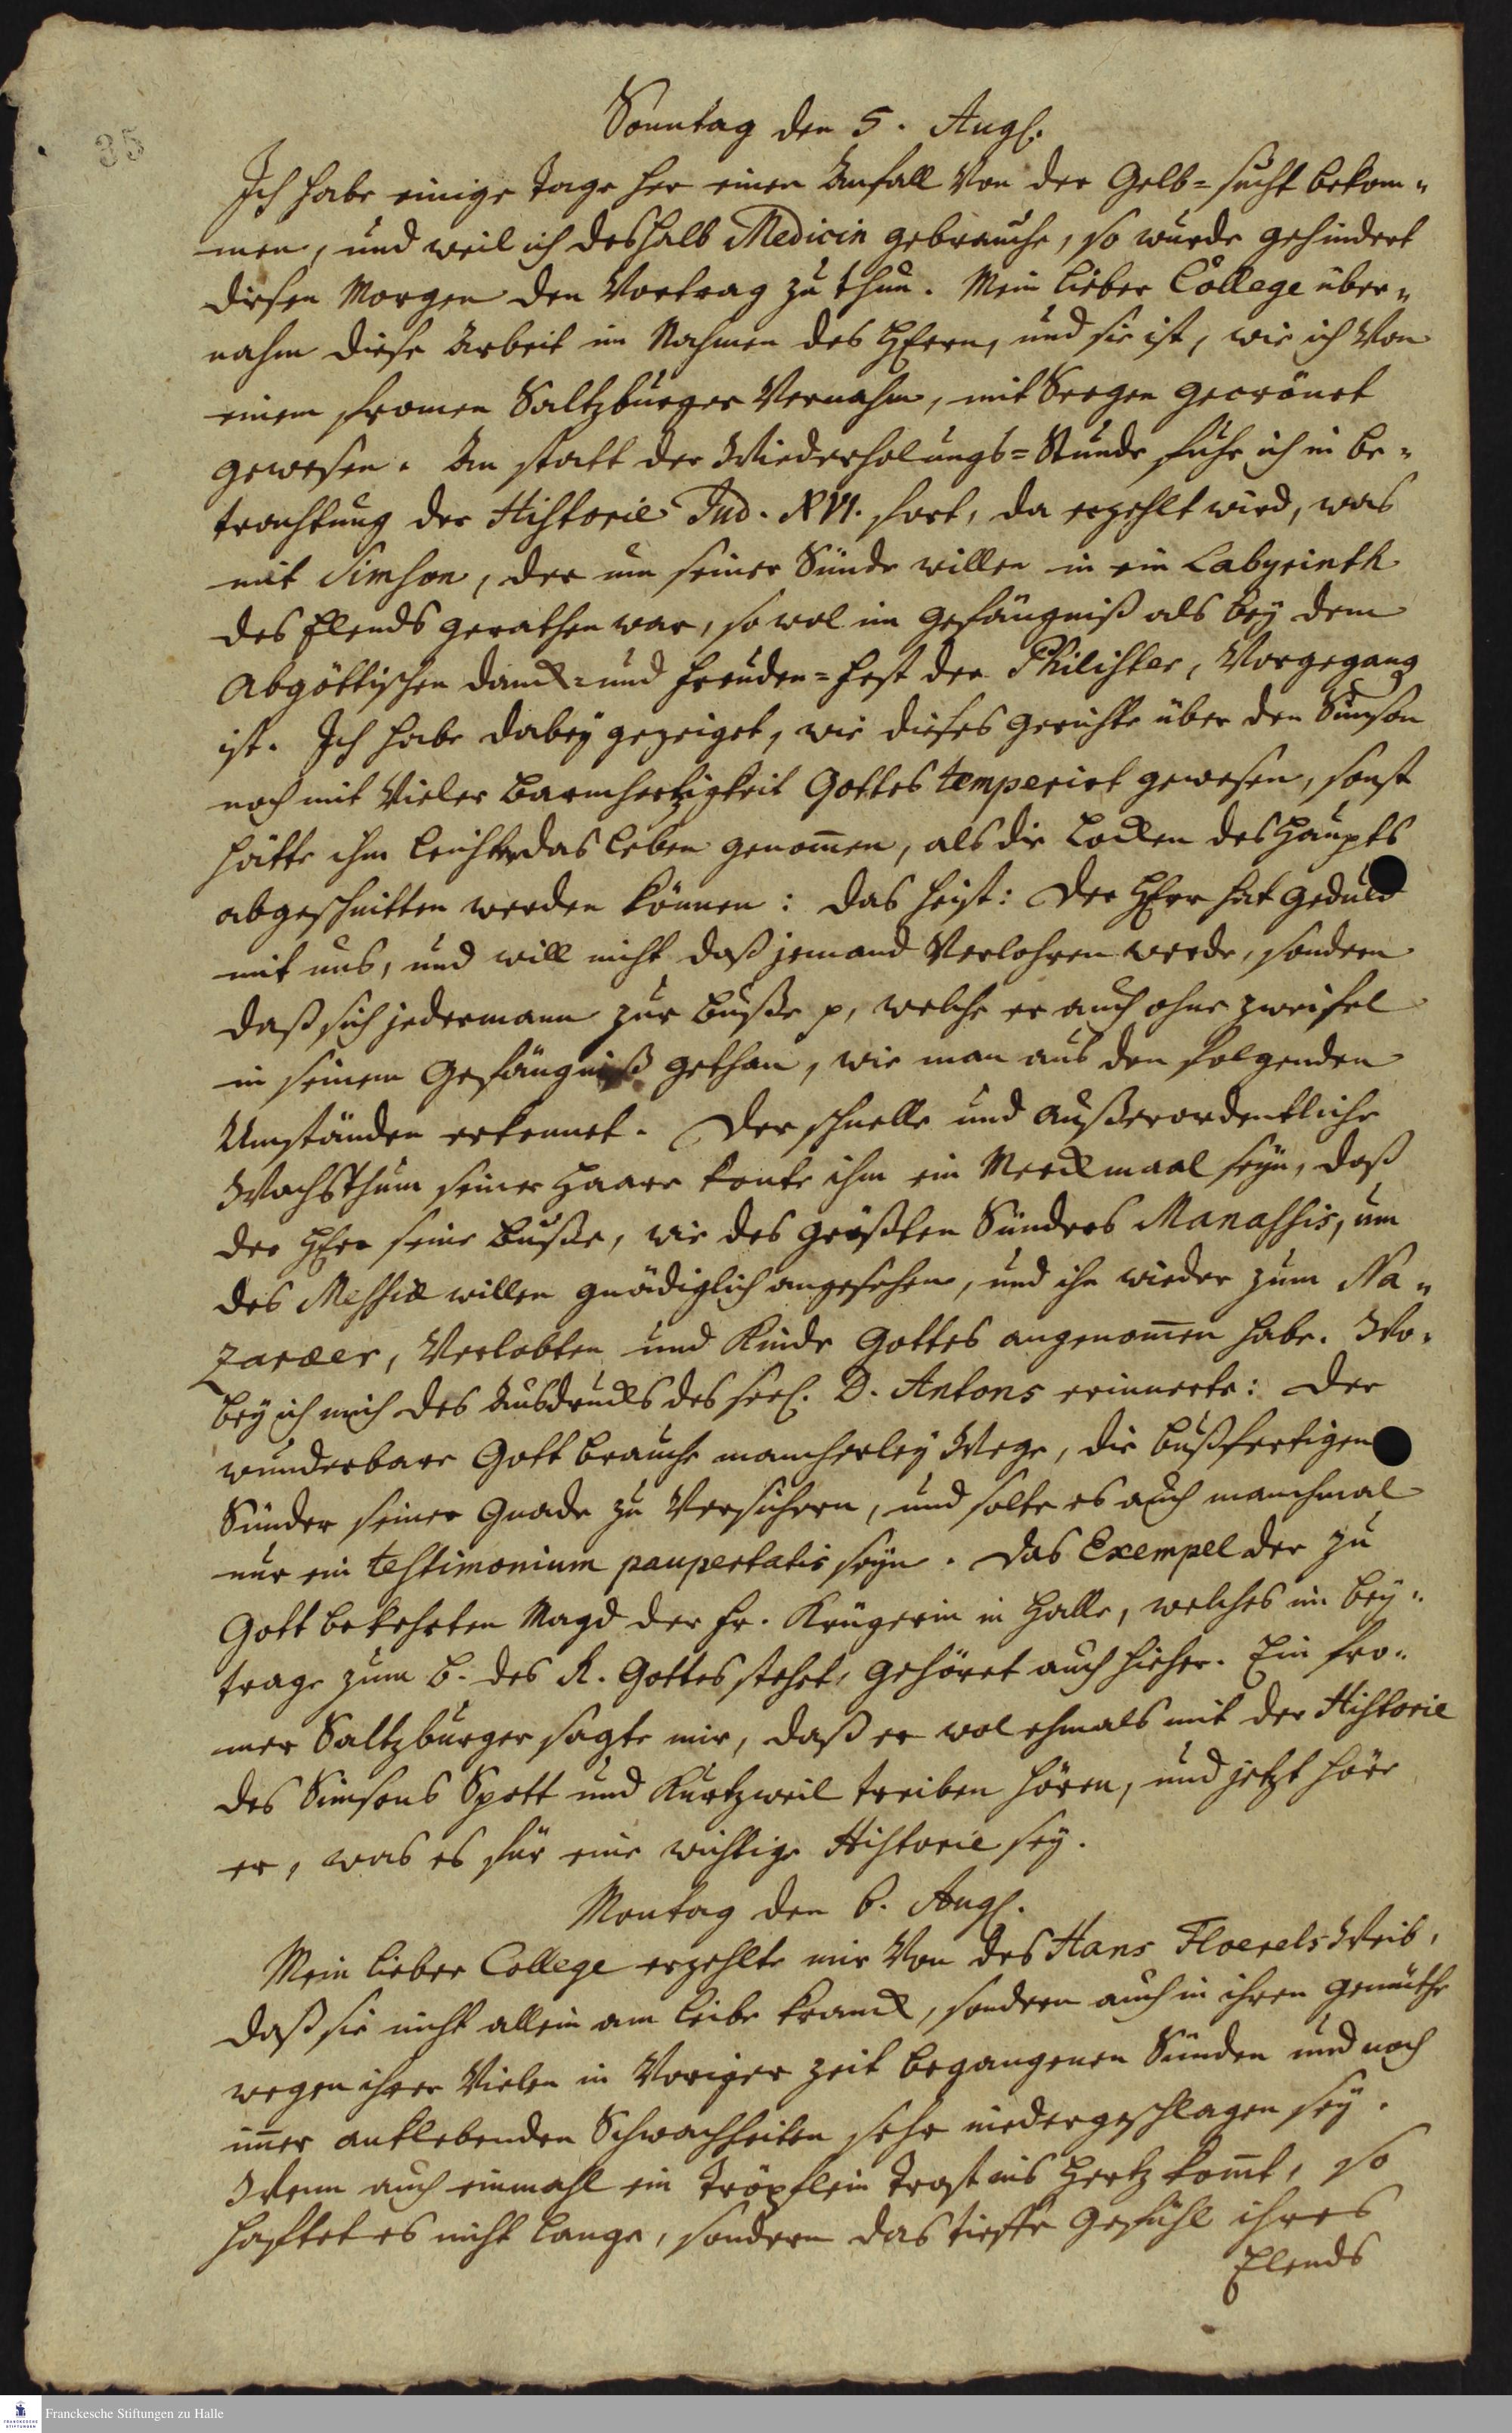 35
Sonntag den 5. Augs.
Ich habe einige Tage her einen Anfall von der Gelb=sucht bekom=
men, und weil ich deshalb Medicin gebrauche, so wurde gehindert
diesen Morgen den Vortrag zu thun. Mein lieber College über=
nahm diese Arbeit im Nahmen des HErrn, und sie ist, wie ich von
einem fromen Saltzburger vernahm, mit Seegen gecrönet
gewesen. An statt der Wiederholungs=Stunde fuhr ich in Be=
trachtung der Historie Jud. XVI. fort, da erzehlt wird, was
mit Simson, der um seiner Sünde willen in ein Labyrinth
des Elends gerathen war, so wol im Gefängniß als bey dem
Abgöttischen Danck= und Freuden=Fest der Philister, vorgegang
ist. Ich habe dabey gezeiget, wie dieses Gerichte über den Simson
noch mit vieler Barmhertzigkeit Gottes temperirt gewesen, sonst
hätte ihm leichter das Leben genom̅en, als die Locken des Haupts
abgeschnitten werden können: das heist: Der HErr hat Geduld
mit uns, und will nicht daß jemand verlohren werde, sondern
daß sich jedermann zur Buße p, welche er auch ohne Zweifel
in seinem Gefängniß gethan, wie man aus den folgenden
Umständen erkennet. Der schnelle und außerordentliche
Wachsthum seiner Haare konte ihm ein Merckmaal seyn, daß
der HErr seine Buße, wie des größten Sünders Manassis, um
des Messiæ willen gnädiglich angesehen, und ihn wieder zum Na=
zaræer, Verlobten und Kinde Gottes angenom̅en habe. Wo=
bey ich mich des Ausdrucks des seel. D. Antons erinnerte: Der
wunderbare Gott brauche mancherley Wege, die bußfertigen
Sünder seiner Gnade zu versichern, und solte es auch manchmal
nur ein testimonium paupertatis seyn. Das Exempel der zu
Gott bekehrten Magd der Fr. Krügerin in Halle, welches im Bey=
trage zum B. des R. Gottes stehet, gehöret auch hieher. Ein fro=
mer Saltzburger sagte mir, daß er wol ehmals mit der Historie
des Simsons Spott und Kurtzweil treiben hören, und jetzt höre
er, was es für eine wichtige Historie sey.
Montag den 6. Augs.
Mein lieber College erzehlte mir von des Hans Floerels Weib,
daß sie nicht allein am Leibe kranck, sondern auch in ihren Gemüthe
wegen ihrer vielen in voriger Zeit begangenen Sünden und noch
im̅er anklebenden Schwachheiten sehr niedergeschlagen sey.
Wenn auch einmahl ein Tröpflein Trost ins Hertz kom̅t, so
haftet es nicht lange, sondern das tieffe Gefühl ihres
Elends
Franckesche Stiftungen zu Halle